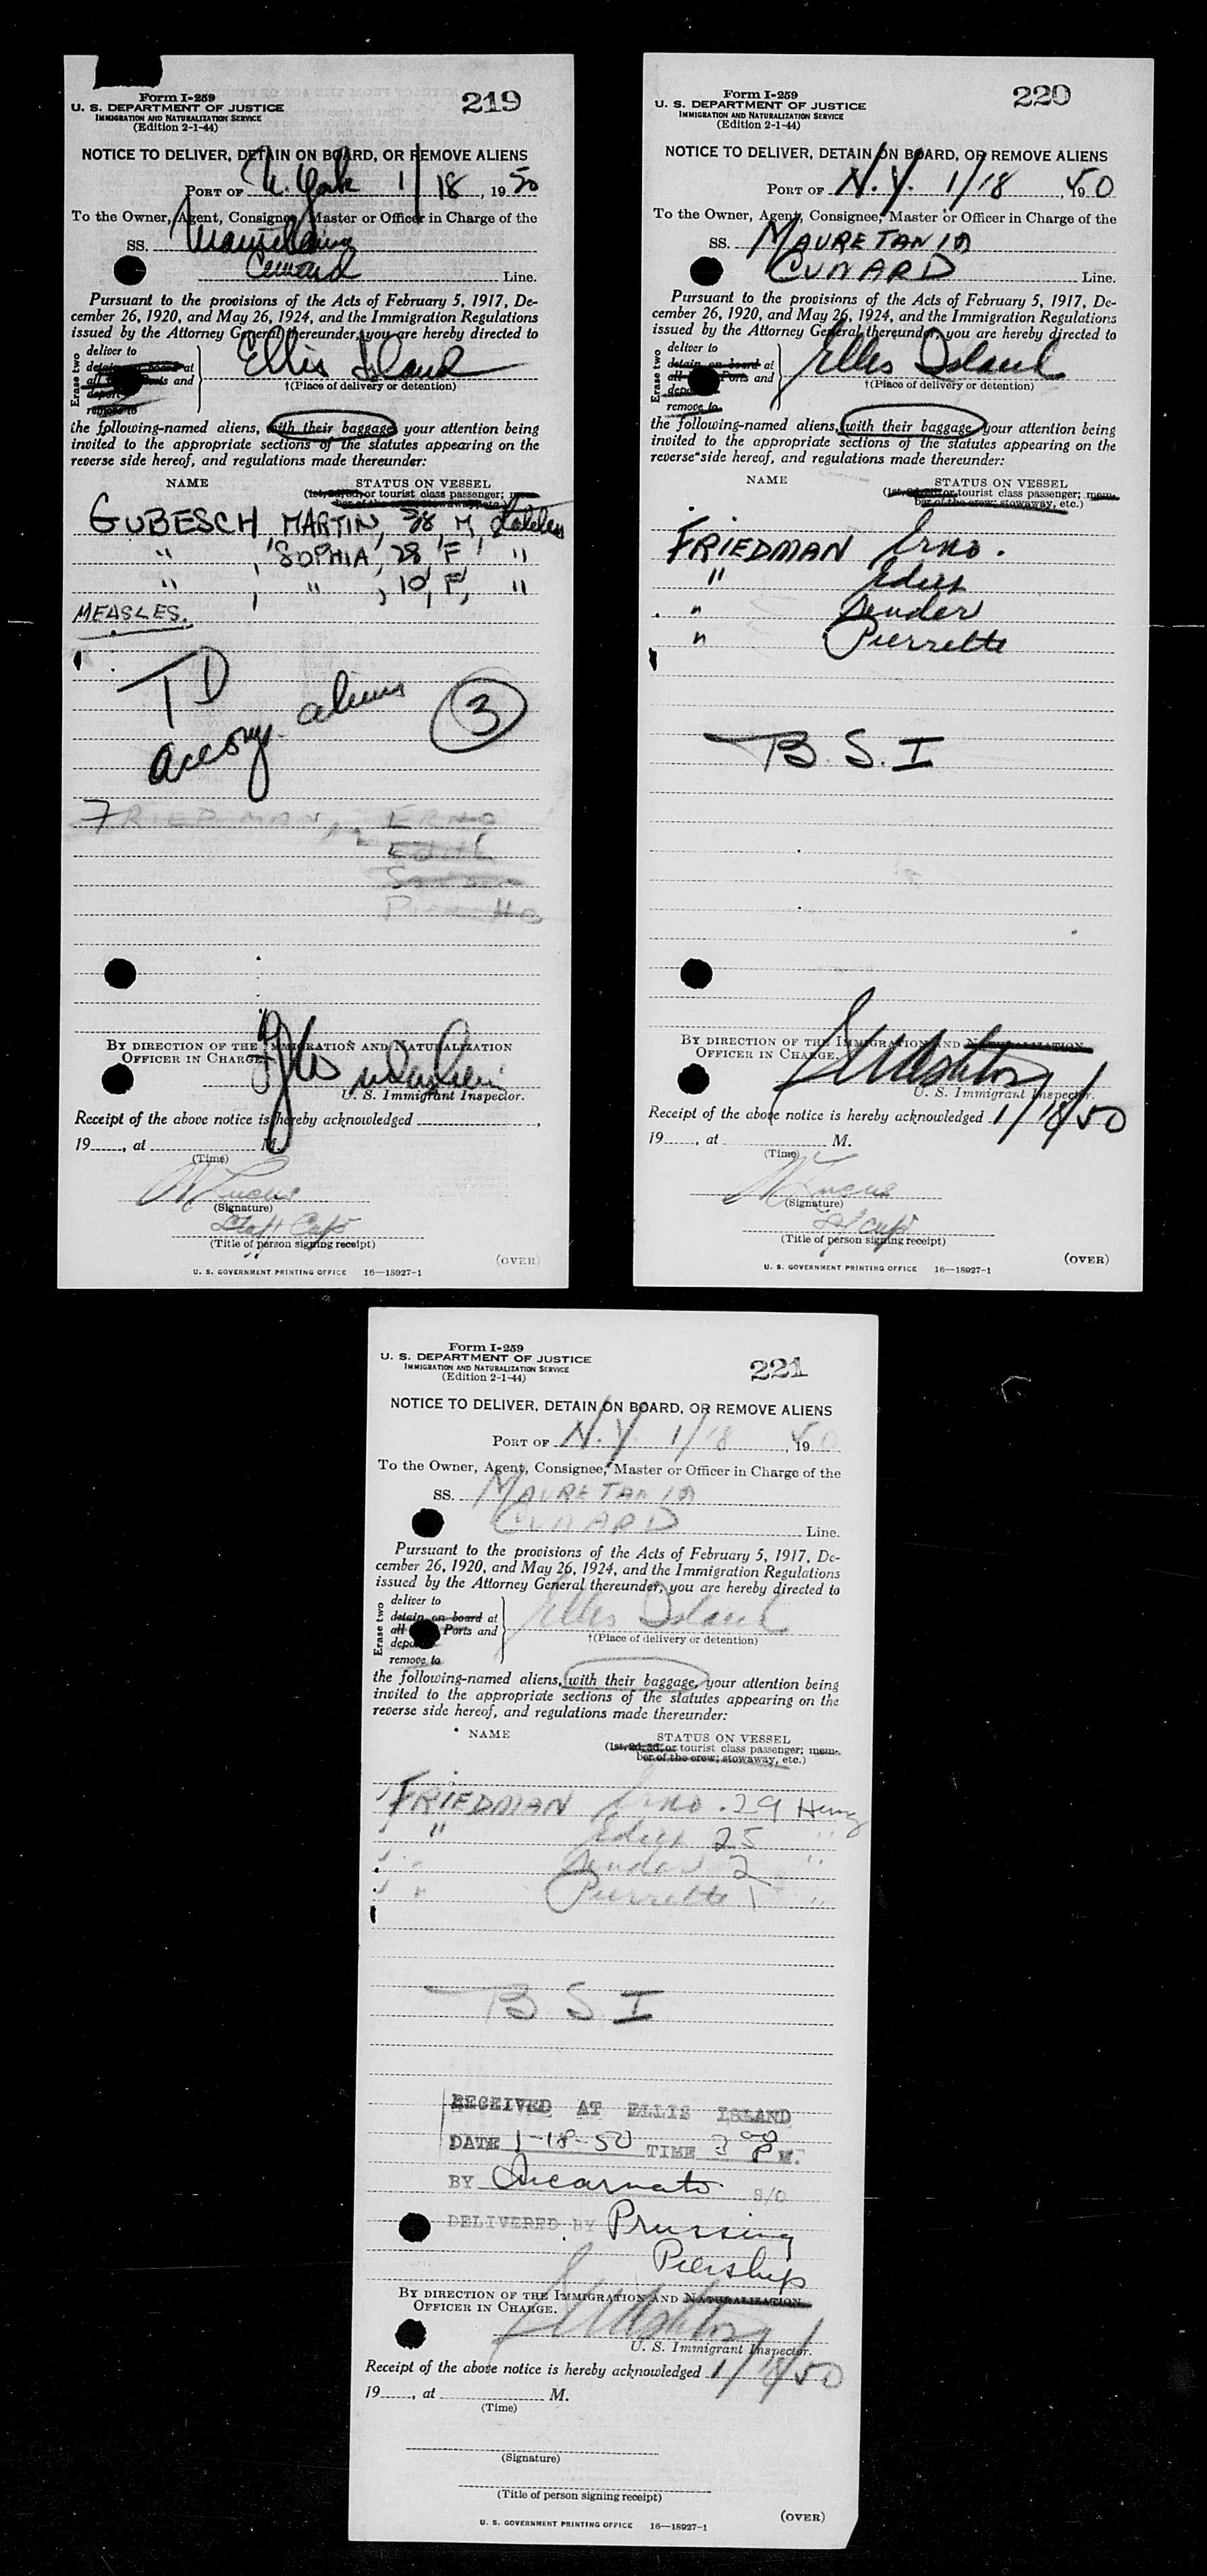 Form I-259
U. S. DEPARTMENT OF JUSTICE
IMMIGRATION AND NATURALIZATION SERVICE
(Edition 2-1-44)
219
NOTICE TO DELIVER, DETAIN ON BOARD, OR REMOVE ALIENS
PORT OF N. York 1/18, 1950
To the Owner, Agent, Consignee, Master or Officer in Charge of the
SS.
Cunard Line.
Pursuant to the provisions of the Acts of February 5, 1917, De-
cember 26, 1920, and May 26, 1924, and the Immigration Regulations
issued by the Attorney General thereunder, you are hereby directed to
Erase two
deliver to
detain on board at
all Ports and
deport
remove to
Ellis Island
†(Place of delivery or detention)
the following-named aliens, with their baggage, your attention being
invited to the appropriate sections of the statutes appearing on the
reverse side hereof, and regulations made thereunder:
NAME STATUS ON VESSEL
(1st, 2d, 3d, or tourist class passenger; mem-
ber of the crew; stowaway, etc.)
GUBESCH, MARTIN, 38, M,
" , SOPHIA, 28, F, "
" , " , 10, F, "
MEASLES.
TD
accomp. aliens 3
FRIEDMAN, ERNO
Edith
BY DIRECTION OF THE IMMIGRATION AND NATURALIZATION
OFFICER IN CHARGE.
U. S. Immigrant Inspector.
Receipt of the above notice is hereby acknowledged
19 , at M.
(Time)
Lucas
(Signature)
Staff Capt
(Title of person signing receipt)
(OVER)
U. S. GOVERNMENT PRINTING OFFICE 16—18927-1
Form I-259
U. S. DEPARTMENT OF JUSTICE
IMMIGRATION AND NATURALIZATION SERVICE
(Edition 2-1-44)
220
NOTICE TO DELIVER, DETAIN ON BOARD, OR REMOVE ALIENS
PORT OF N. Y. 1/18, 1950
To the Owner, Agent, Consignee, Master or Officer in Charge of the
SS. MAURETANIA
CUNARD Line.
Pursuant to the provisions of the Acts of February 5, 1917, De-
cember 26, 1920, and May 26, 1924, and the Immigration Regulations
issued by the Attorney General thereunder, you are hereby directed to
Erase two
deliver to
detain on board at
all Ports and
deport
remove to
Ellis Island
†(Place of delivery or detention)
the following-named aliens, with their baggage, your attention being
invited to the appropriate sections of the statutes appearing on the
reverse side hereof, and regulations made thereunder:
NAME STATUS ON VESSEL
(1st, 2d, 3d, or tourist class passenger; mem-
ber of the crew; stowaway, etc.)
FRIEDMAN Erno.
" Edith
" Sender
" Pierrette
B. S. I
BY DIRECTION OF THE IMMIGRATION AND NATURALIZATION
OFFICER IN CHARGE.
U. S. Immigrant Inspector.
Receipt of the above notice is hereby acknowledged 1/18/50
19 , at M.
(Time)
Lucas
(Signature)
St Capt
(Title of person signing receipt)
(OVER)
U. S. GOVERNMENT PRINTING OFFICE 16—18927-1
Form I-259
U. S. DEPARTMENT OF JUSTICE
IMMIGRATION AND NATURALIZATION SERVICE
(Edition 2-1-44)
221
NOTICE TO DELIVER, DETAIN ON BOARD, OR REMOVE ALIENS
PORT OF N. Y. 1/18, 1950
To the Owner, Agent, Consignee, Master or Officer in Charge of the
SS. MAURETANIA
CUNARD Line.
Pursuant to the provisions of the Acts of February 5, 1917, De-
cember 26, 1920, and May 26, 1924, and the Immigration Regulations
issued by the Attorney General thereunder, you are hereby directed to
Erase two
deliver to
detain on board at
all Ports and
deport
remove to
Ellis Island
†(Place of delivery or detention)
the following-named aliens, with their baggage, your attention being
invited to the appropriate sections of the statutes appearing on the
reverse side hereof, and regulations made thereunder:
NAME STATUS ON VESSEL
(1st, 2d, 3d, or tourist class passenger; mem-
ber of the crew; stowaway, etc.)
FRIEDMAN Erno. 29 Hung
" Edith 25 "
" Sender 2 "
" Pierrette 1 "
B S. I
RECEIVED AT ELLIS ISLAND
DATE 1-18-50 TIME 3 00 P M.
BY Incarnato S/O
DELIVERED BY Prussing
Piership
BY DIRECTION OF THE IMMIGRATION AND NATURALIZATION
OFFICER IN CHARGE.
U. S. Immigrant Inspector.
Receipt of the above notice is hereby acknowledged 1/18/50
19 , at M.
(Time)
(Signature)
(Title of person signing receipt)
(OVER)
U. S. GOVERNMENT PRINTING OFFICE 16—18927-1